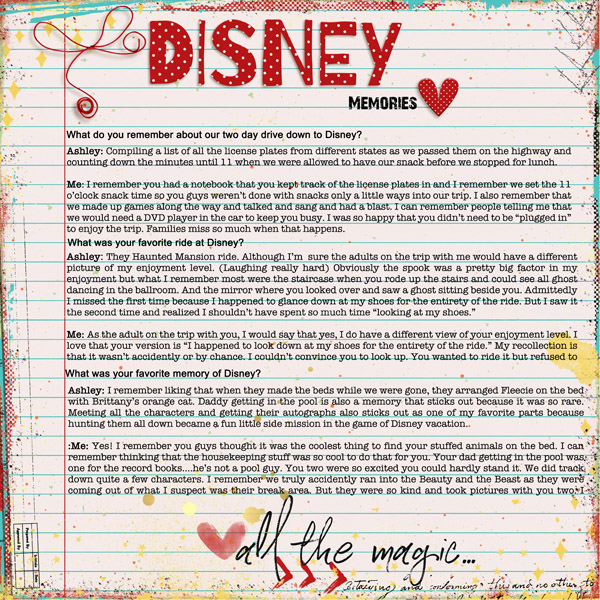 DISNEY
MEMORIES
What do you remember about our two day drive down to Disney?
Ashley: Compiling a list of all the license plates from different states as we passed them on the highway and
counting down the minutes until 11 when we were allowed to have our snack before we stopped for lunch.
Me: I remember you had a notebook that you kept track of the license plates in and I remember we set the 11
o'clock snack time so you guys weren't done with snacks only a little ways into our trip. I also remember that
we made up games along the way and talked and sang and had a blast. I can remember people telling me that
we would need a DVD player in the car to keep you busy. I was so happy that you didn't need to be "plugged in"
to enjoy the trip. Families miss so much when that happens.
What was your favorite ride at Disney?
Ashley: They Haunted Mansion ride. Although I'm sure the adults on the trip with me would have a different
picture of my enjoyment level. (Laughing really hard) Obviously the spook was a pretty big factor in my
enjoyment but what I remember most were the staircase when you rode up the stairs and could see all ghost
dancing in the ballroom. And the mirror where you looked over and saw a ghost sitting beside you. Admittedly
I missed the first time because I happened to glance down at my shoes for the entirety of the ride. But I saw it
the second time and realized I shouldn't have spent so much time "looking at my shoes."
Me: As the adult on the trip with you, I would say that yes, I do have a different view of your enjoyment level. I
love that your version is "I happened to look down at my shoes for the entirety of the ride." My recollection is
that it wasn't accidently or by chance. I couldn't convince you to look up. You wanted to ride it but refused to
What was your favorite memory of Disney?
Ashley: I remember liking that when they made the beds while we were gone, they arranged Fleecie on the bed
with Brittany's orange cat. Daddy getting in the pool is also a memory that sticks out because it was so rare.
Meeting all the characters and getting their autographs also sticks out as one of my favorite parts because
hunting them all down became a fun little side mission in the game of Disney vacation.
:Me: Yes! I remember you guys thought it was the coolest thing to find your stuffed animals on the bed. I can
remember thinking that the housekeeping stuff was so cool to do that for you. Your dad getting in the pool was
one for the record books....he's not a pool guy. You two were so excited you could hardly stand it. We did track
down quite a few characters. I remember we truly accidently ran into the Beauty and the Beast as they were
coming out of what I suspect was their break area. But they were so kind and took pictures with you two. I
all the magic...
and conforming this and no other to